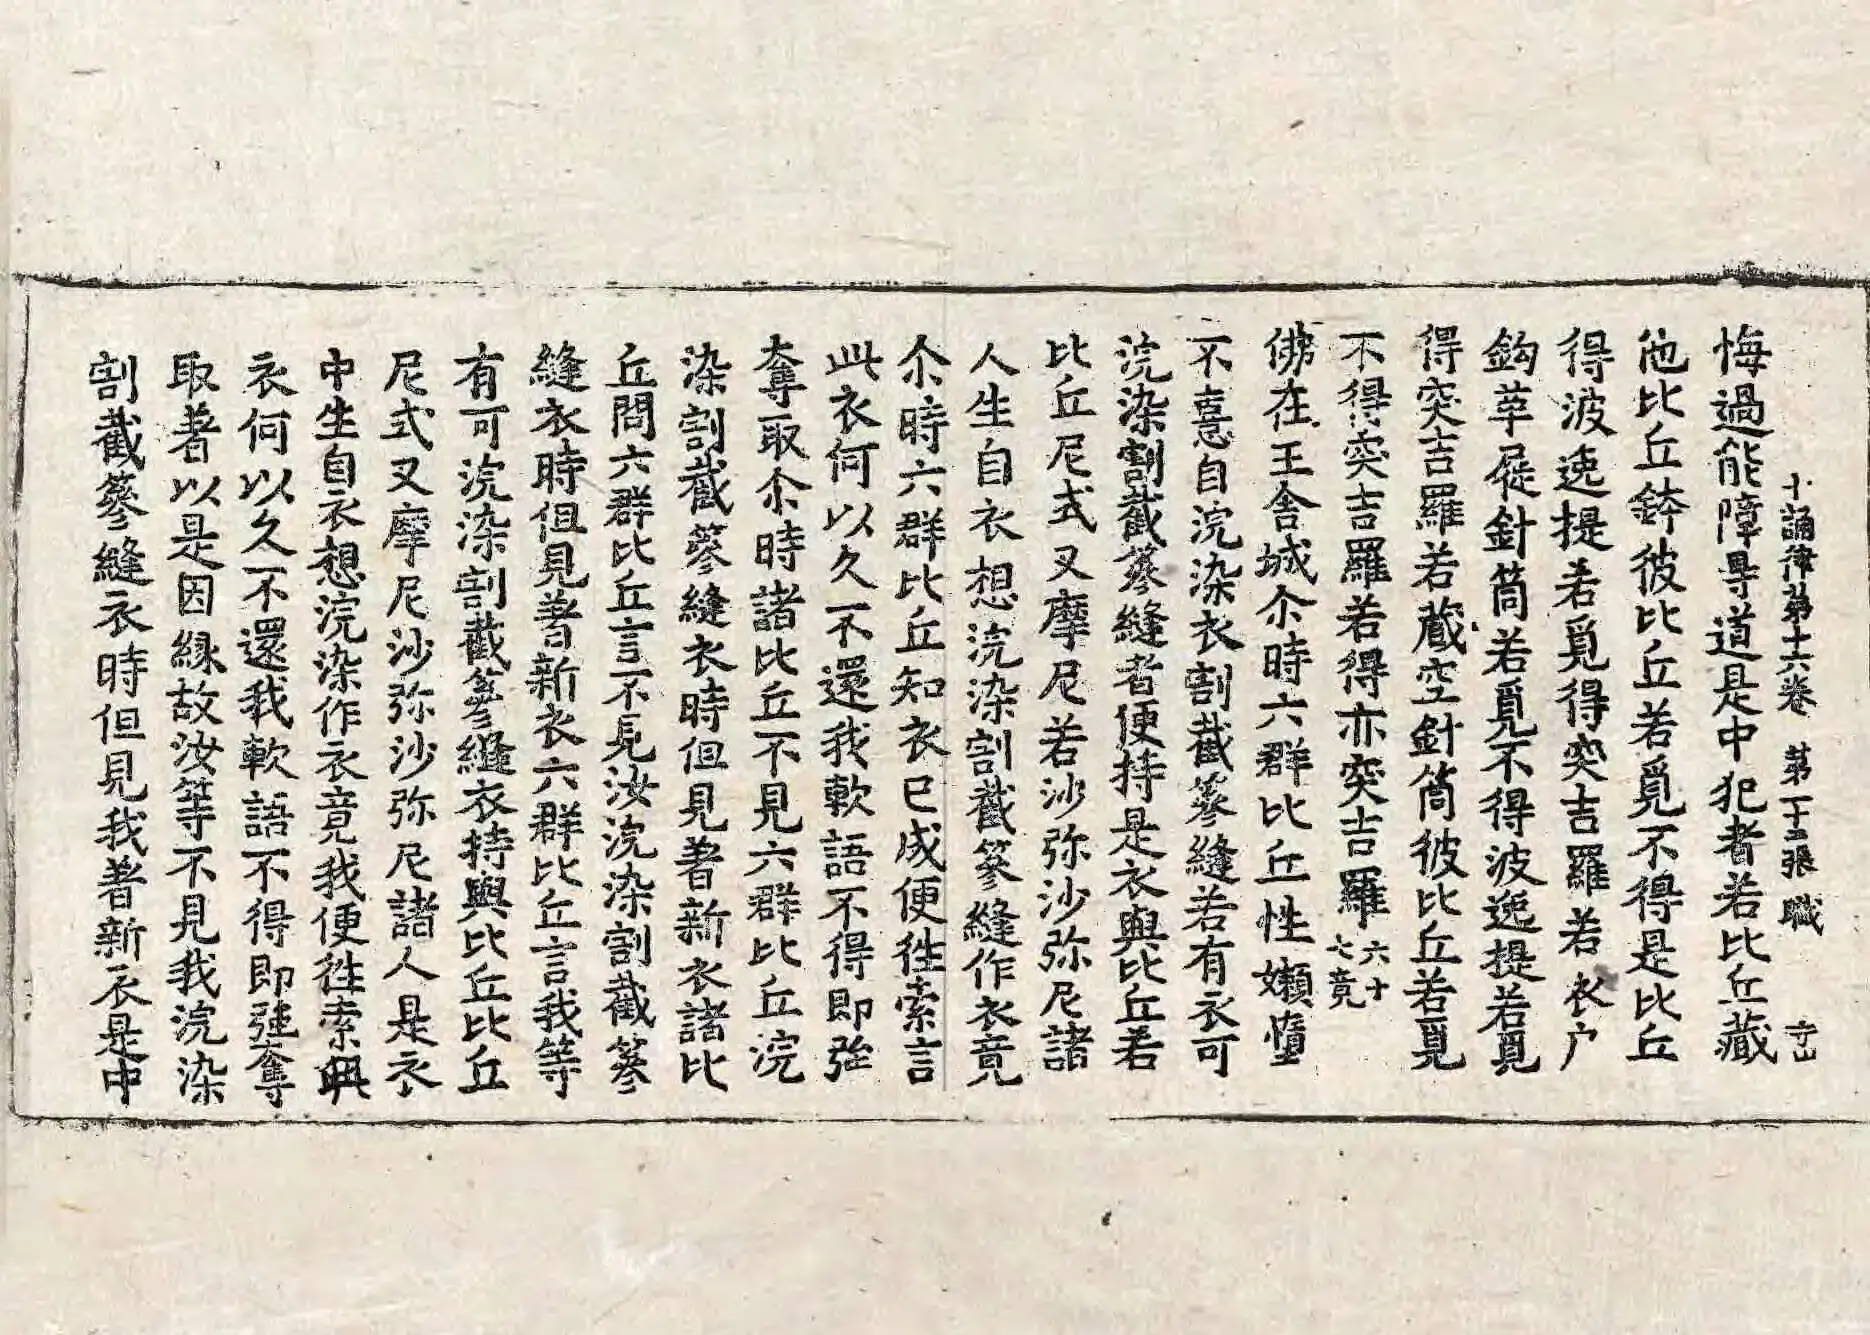 十誦律第十六卷 第二十二張 職 守山
悔過能障㝵道是中犯者若比丘藏
他比丘鉢彼比丘若覓不得是比丘
得波逸提若覓得突吉羅若衣户
鈎革屣針筒若覓不得波逸提若覓
得突吉羅若藏空針筒彼比丘若覓
不得突吉羅若得亦突吉羅六十七竟
佛在王舍城尒時六群比丘性嬾墮
不憙自浣染衣割截篸縫若有衣可
浣染割截篸縫者便持是衣與比丘若
比丘尼式叉摩尼若沙弥沙弥尼諸
人生自衣想浣染割截篸縫作衣竟
尒時六群比丘知衣已成便徃索言
此衣何以久不還我軟語不得即強
奪取尒時諸比丘不見六群比丘浣
染割截篸縫衣時但見著新衣諸比
丘問六群比丘言不見汝浣染割截篸
縫衣時但見著新衣六群比丘言我等
有可浣染割截篸縫衣持與比丘比丘
尼式叉摩尼沙弥沙弥尼諸人是衣
中生自衣想浣染作衣竟我便徃索與
衣何以久不還我軟語不得即強奪
取著以是因緣故汝等不見我浣染
割截篸縫衣時但見我著新衣是中